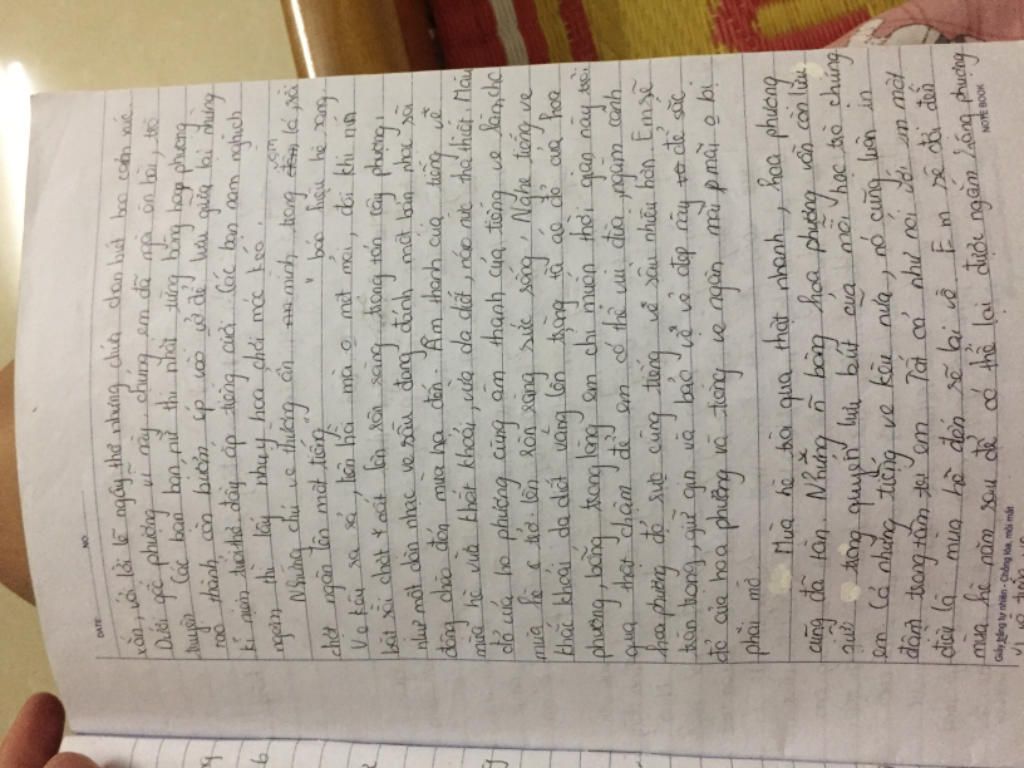 DATE: NO.
xóa, với lời lẽ ngây thơ nhưng chứa chan biết bao cảm xúc.
Dưới gốc phượng vĩ này, chúng em đã ngồi ôn bài, trò
chuyện. Các bạn bạn nữ thì nhặt từng bông hoa phượng
tạo thành con bướm ép vào vở để lưu giữ lại những
kỉ niệm tuổi thơ đầy ắp tiếng cười. Các bạn nam nghịch
ngợm thì lấy nhuỵ hoa chơi móc kéo.
Những chú ve thường ẩn mình trong lá, rồi
chợt ngân lên một tiếng báo hiệu hè sang.
Ve kêu ra rả, liên hồi mãi o mệt mỏi, đôi khi nín
bặt rồi chợt cất lên râm ran trong tán cây phượng,
như một dàn nhạc ve sầu đang đánh một bản nhạc sôi
động chào đón mùa hạ đến. Âm thanh của tiếng ve
mùa hè vừa khoát khoải, vừa da diết, náo nức tha thiết. Màu
đỏ của hoa phượng cùng âm thanh của tiếng ve làm cho
mùa hè trở lên tràn sức sống. Nghe tiếng ve
khoải, da diết vang lên trong từ áo đỏ của hoa
phượng, bỗng trong lòng em chỉ muốn thời gian này trôi
qua thật chậm để em có thể vui đùa, ngắm cành
hoa phượng đỏ rực cùng tiếng ve sầu nhiều hơn. Em sẽ
trân trọng, giữ gìn và bảo vệ vẻ đẹp này để sắc
đỏ của hoa phượng và tiếng ve ngân mãi o bị
phai mờ.
Mùa hè trôi qua thật nhanh, hoa phượng
cũng đã tàn. Nhưng bông hoa phượng vẫn còn lưu
giữ trong quyển lưu bút của mỗi học trò chúng
em. Cả những tiếng ve kêu nữa, nó cũng liên in
đậm trong tâm trí em. Tất cả như nói với em một
điều là mùa hè đến sẽ lại về. Em sẽ đợi đến
mùa hè năm sau để có thể lại được ngắm hàng phượng
Giấy trắng tự nhiên - Chống lóa, mỏi mắt NOTE BOOK